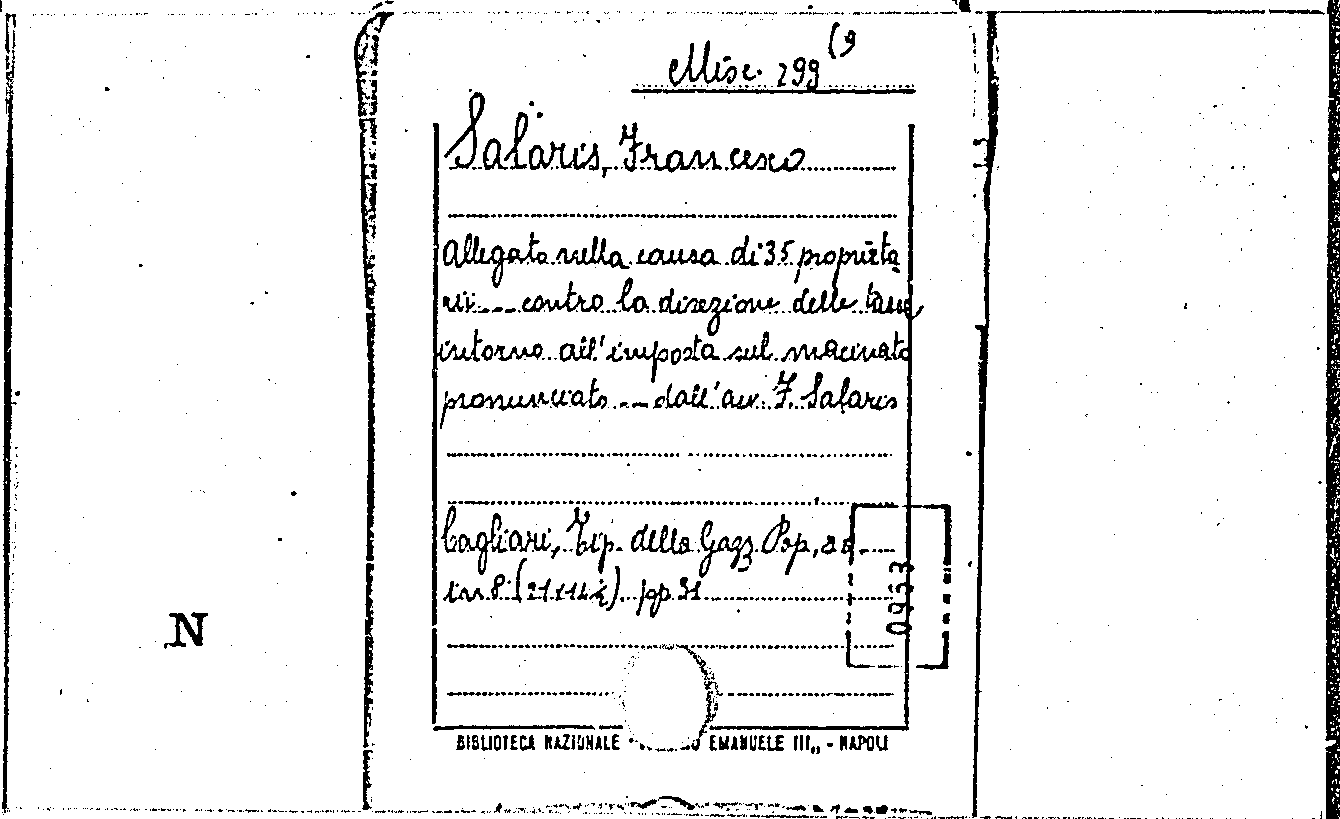 Misc. 299 (9
Salaris, Francesco
Allegato nella causa di 35 proprieta
rii --- contro la direzione delle tasse
intorno all'imposta sul macinato
pronunciato --- dall'avv. F. Salaris
Cagliari, Tip. della Gazz. Pop, s.d.
in 8° (21x14½) pp 31
0953
N
BIBLIOTECA NAZIONALE • EMANUELE III,, - NAPOLI